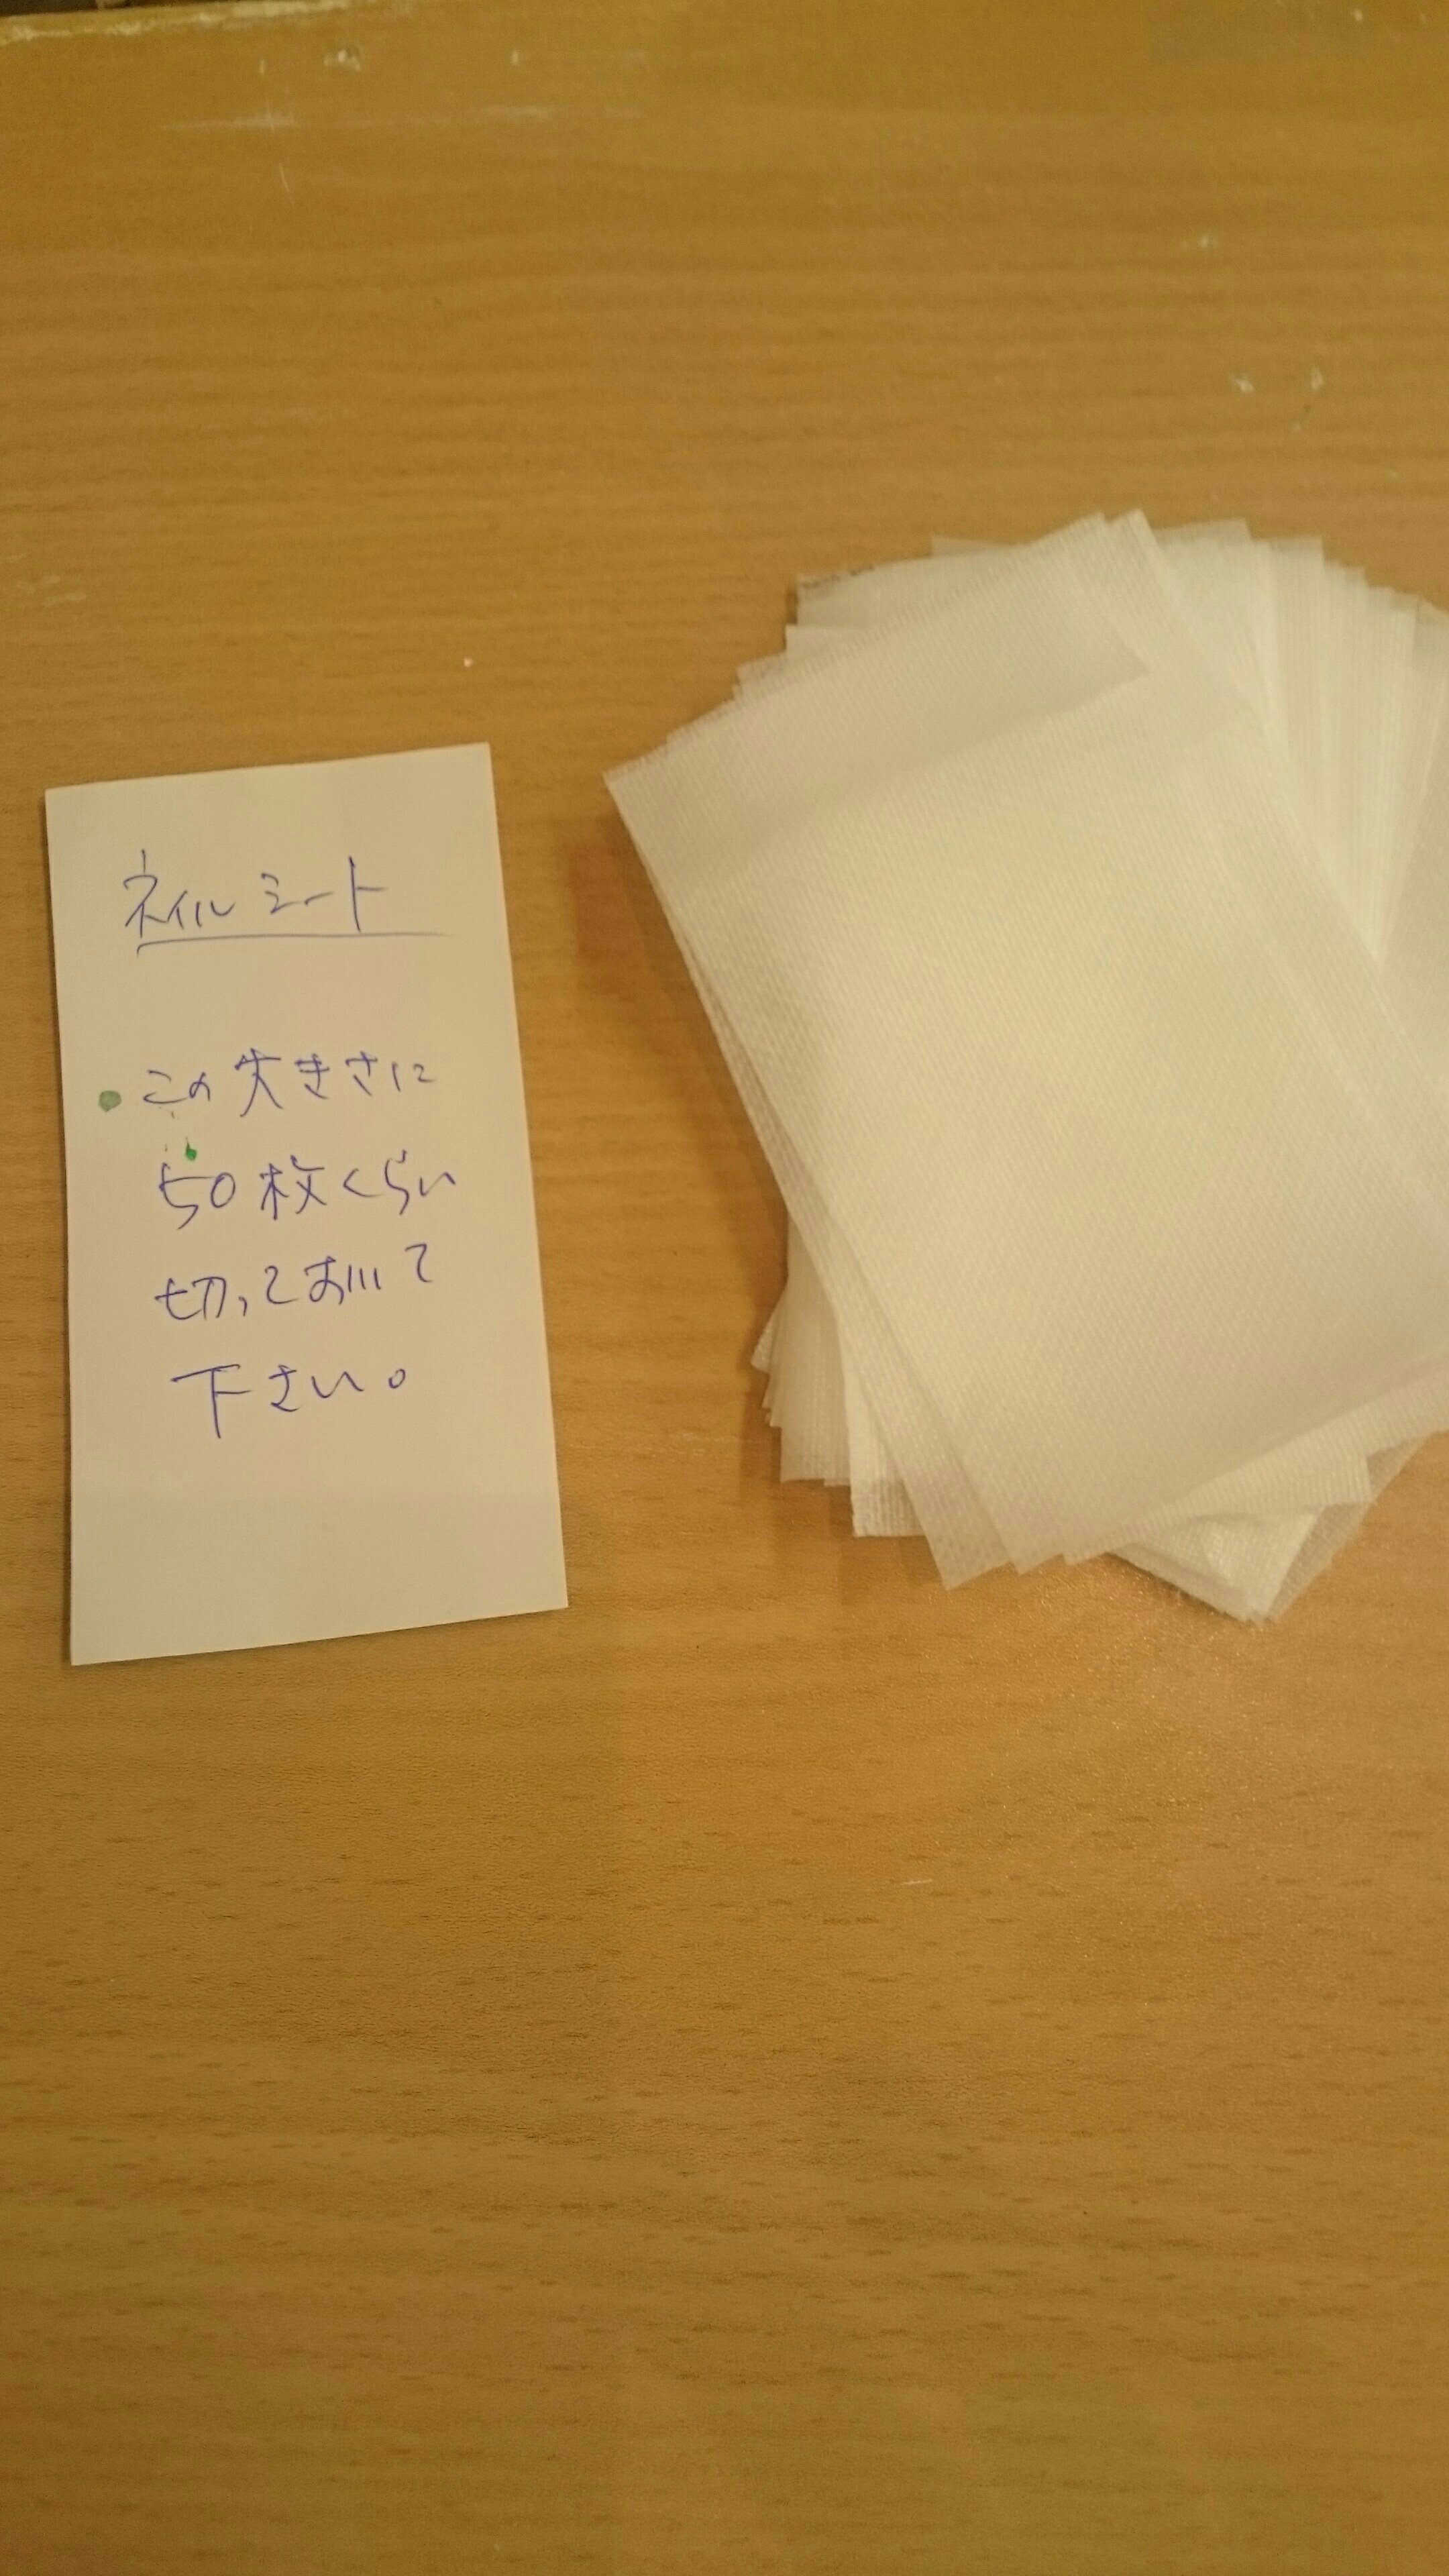 ネイルシート
・この大きさに
50枚くらい
切っておいて
下さい。